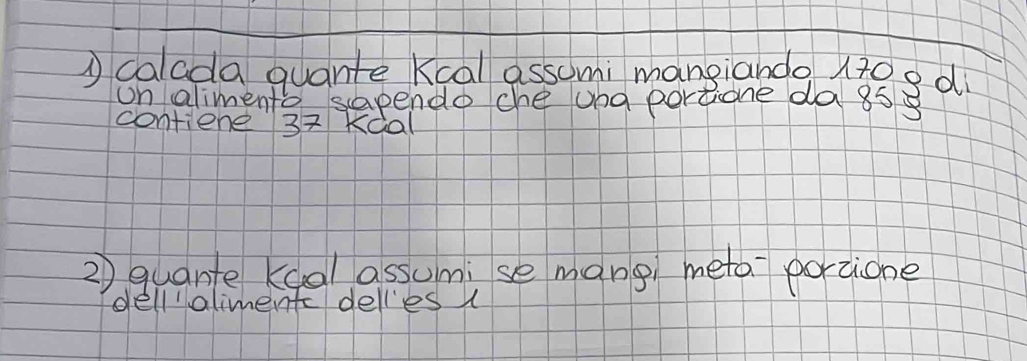 1) calcola quante Kcal assumi mangiando 170 g di
un alimento sapendo che una porzione da 85 g
contiene 37 Kcal
2) quante Kcal assumi se mangi metà porzione
dell'alimento dell'es 1